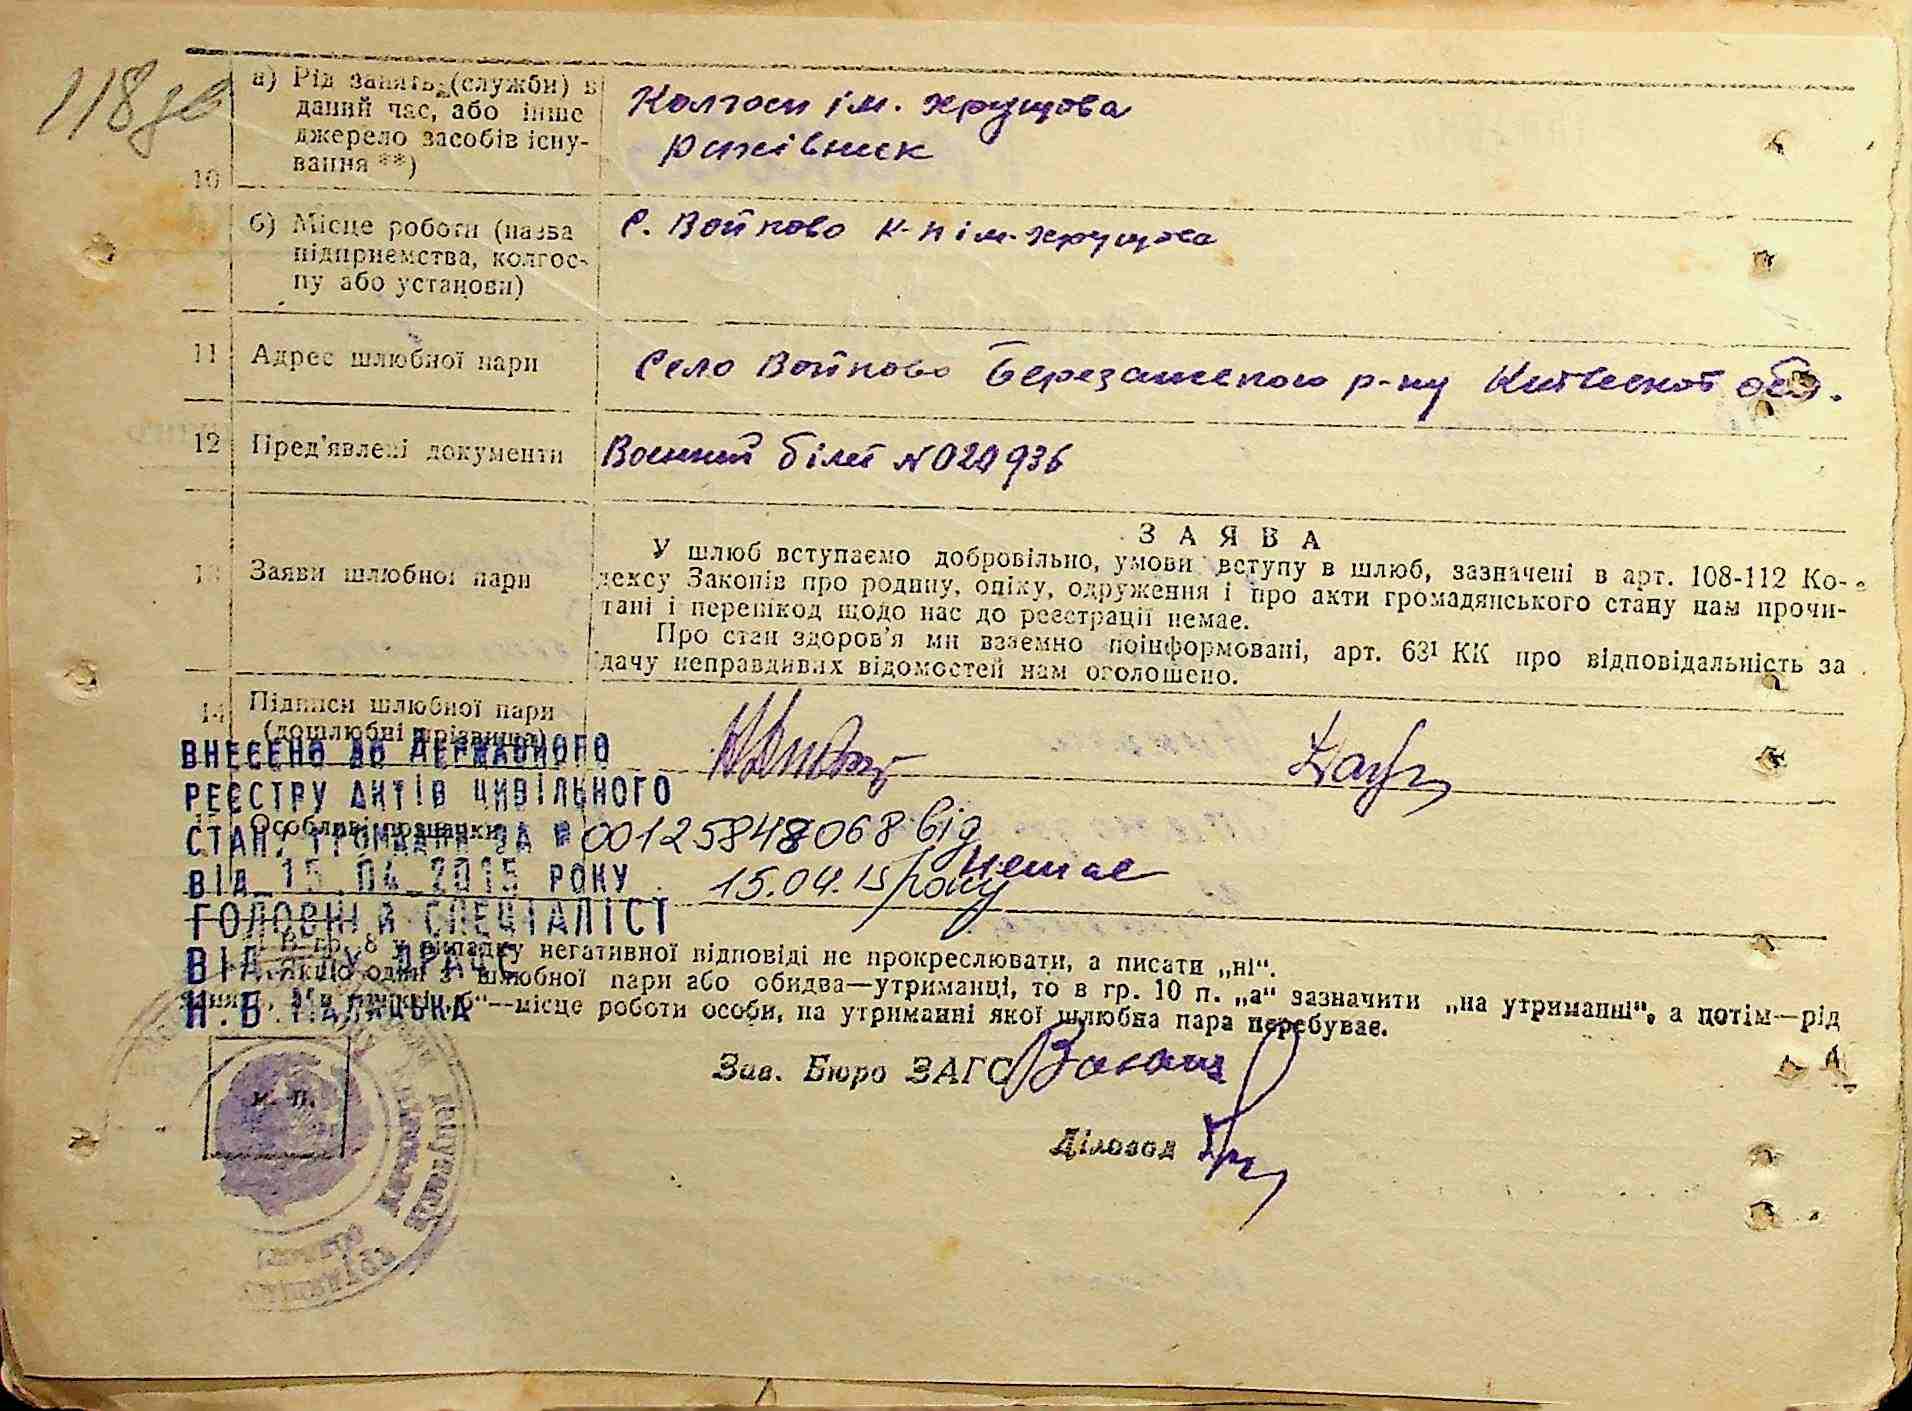 118 зв
а) Рід занять (служби) в
даний час, або інше
джерело засобів існу-
вання **)
10
Колгосп ім. Хрущова
рахівник
б) Місце роботи (назва
підприємства, колгос-
пу або установи)
с. Войково к-п ім. Хрущова
11 Адрес шлюбної пари
Село Войково Березанського р-ну Київської обл.
12 Пред'явлені документи
Воєнний білет № 020936
13 Заяви шлюбної пари
ЗАЯВА
У шлюб вступаємо добровільно, умови вступу в шлюб, зазначені в арт. 108-112 Ко-
дексу Законів про родину, опіку, одруження і про акти громадянського стану нам прочи-
тані і перешкод щодо нас до реєстрації немає.
Про стан здоров'я ми взаємно поінформовані, арт. 63¹ КК про відповідальність за
дачу неправдивих відомостей нам оголошено.
14 Підписи шлюбної пари
(дошлюбні прізвища)
ВНЕСЕНО ДО ДЕРЖАВНОГО
РЕЄСТРУ АКТІВ ЦИВІЛЬНОГО
Особливі
СТАНУ ГРОМАДЯН ЗА № 00125848068 від
ВІД 15.04.2015 РОКУ 15.04.15 року
немає
ГОЛОВНИЙ СПЕЦІАЛІСТ
ВІДДІЛУ ДРАЦС
Н.В.
В гр. 8 у випадку негативної відповіді не прокреслювати, а писати „ні“.
Якщо один з шлюбної пари або обидва—утриманці, то в гр. 10 п. „а“ зазначити „на утриманні“, а потім—рід
„б“—місце роботи особи, на утриманні якої шлюбна пара перебуває.
Зав. Бюро ЗАГС
м. п.
Діловод